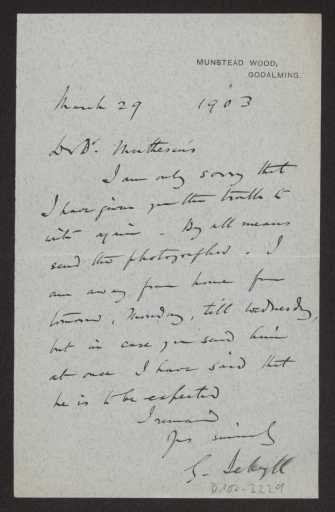 MUNSTEAD WOOD,
GODALMING.
March 29 1903
Dr Dr. Muthesius
I am only sorry that
I have given you the trouble to
write again. By all means
send the photographer. I
am away from home from
tomorrow, Monday, till Wednesday,
but in case you send him
at once I have said that
he is to be expected
I remain
Yrs sincerely
G. Jekyll
D102-3229